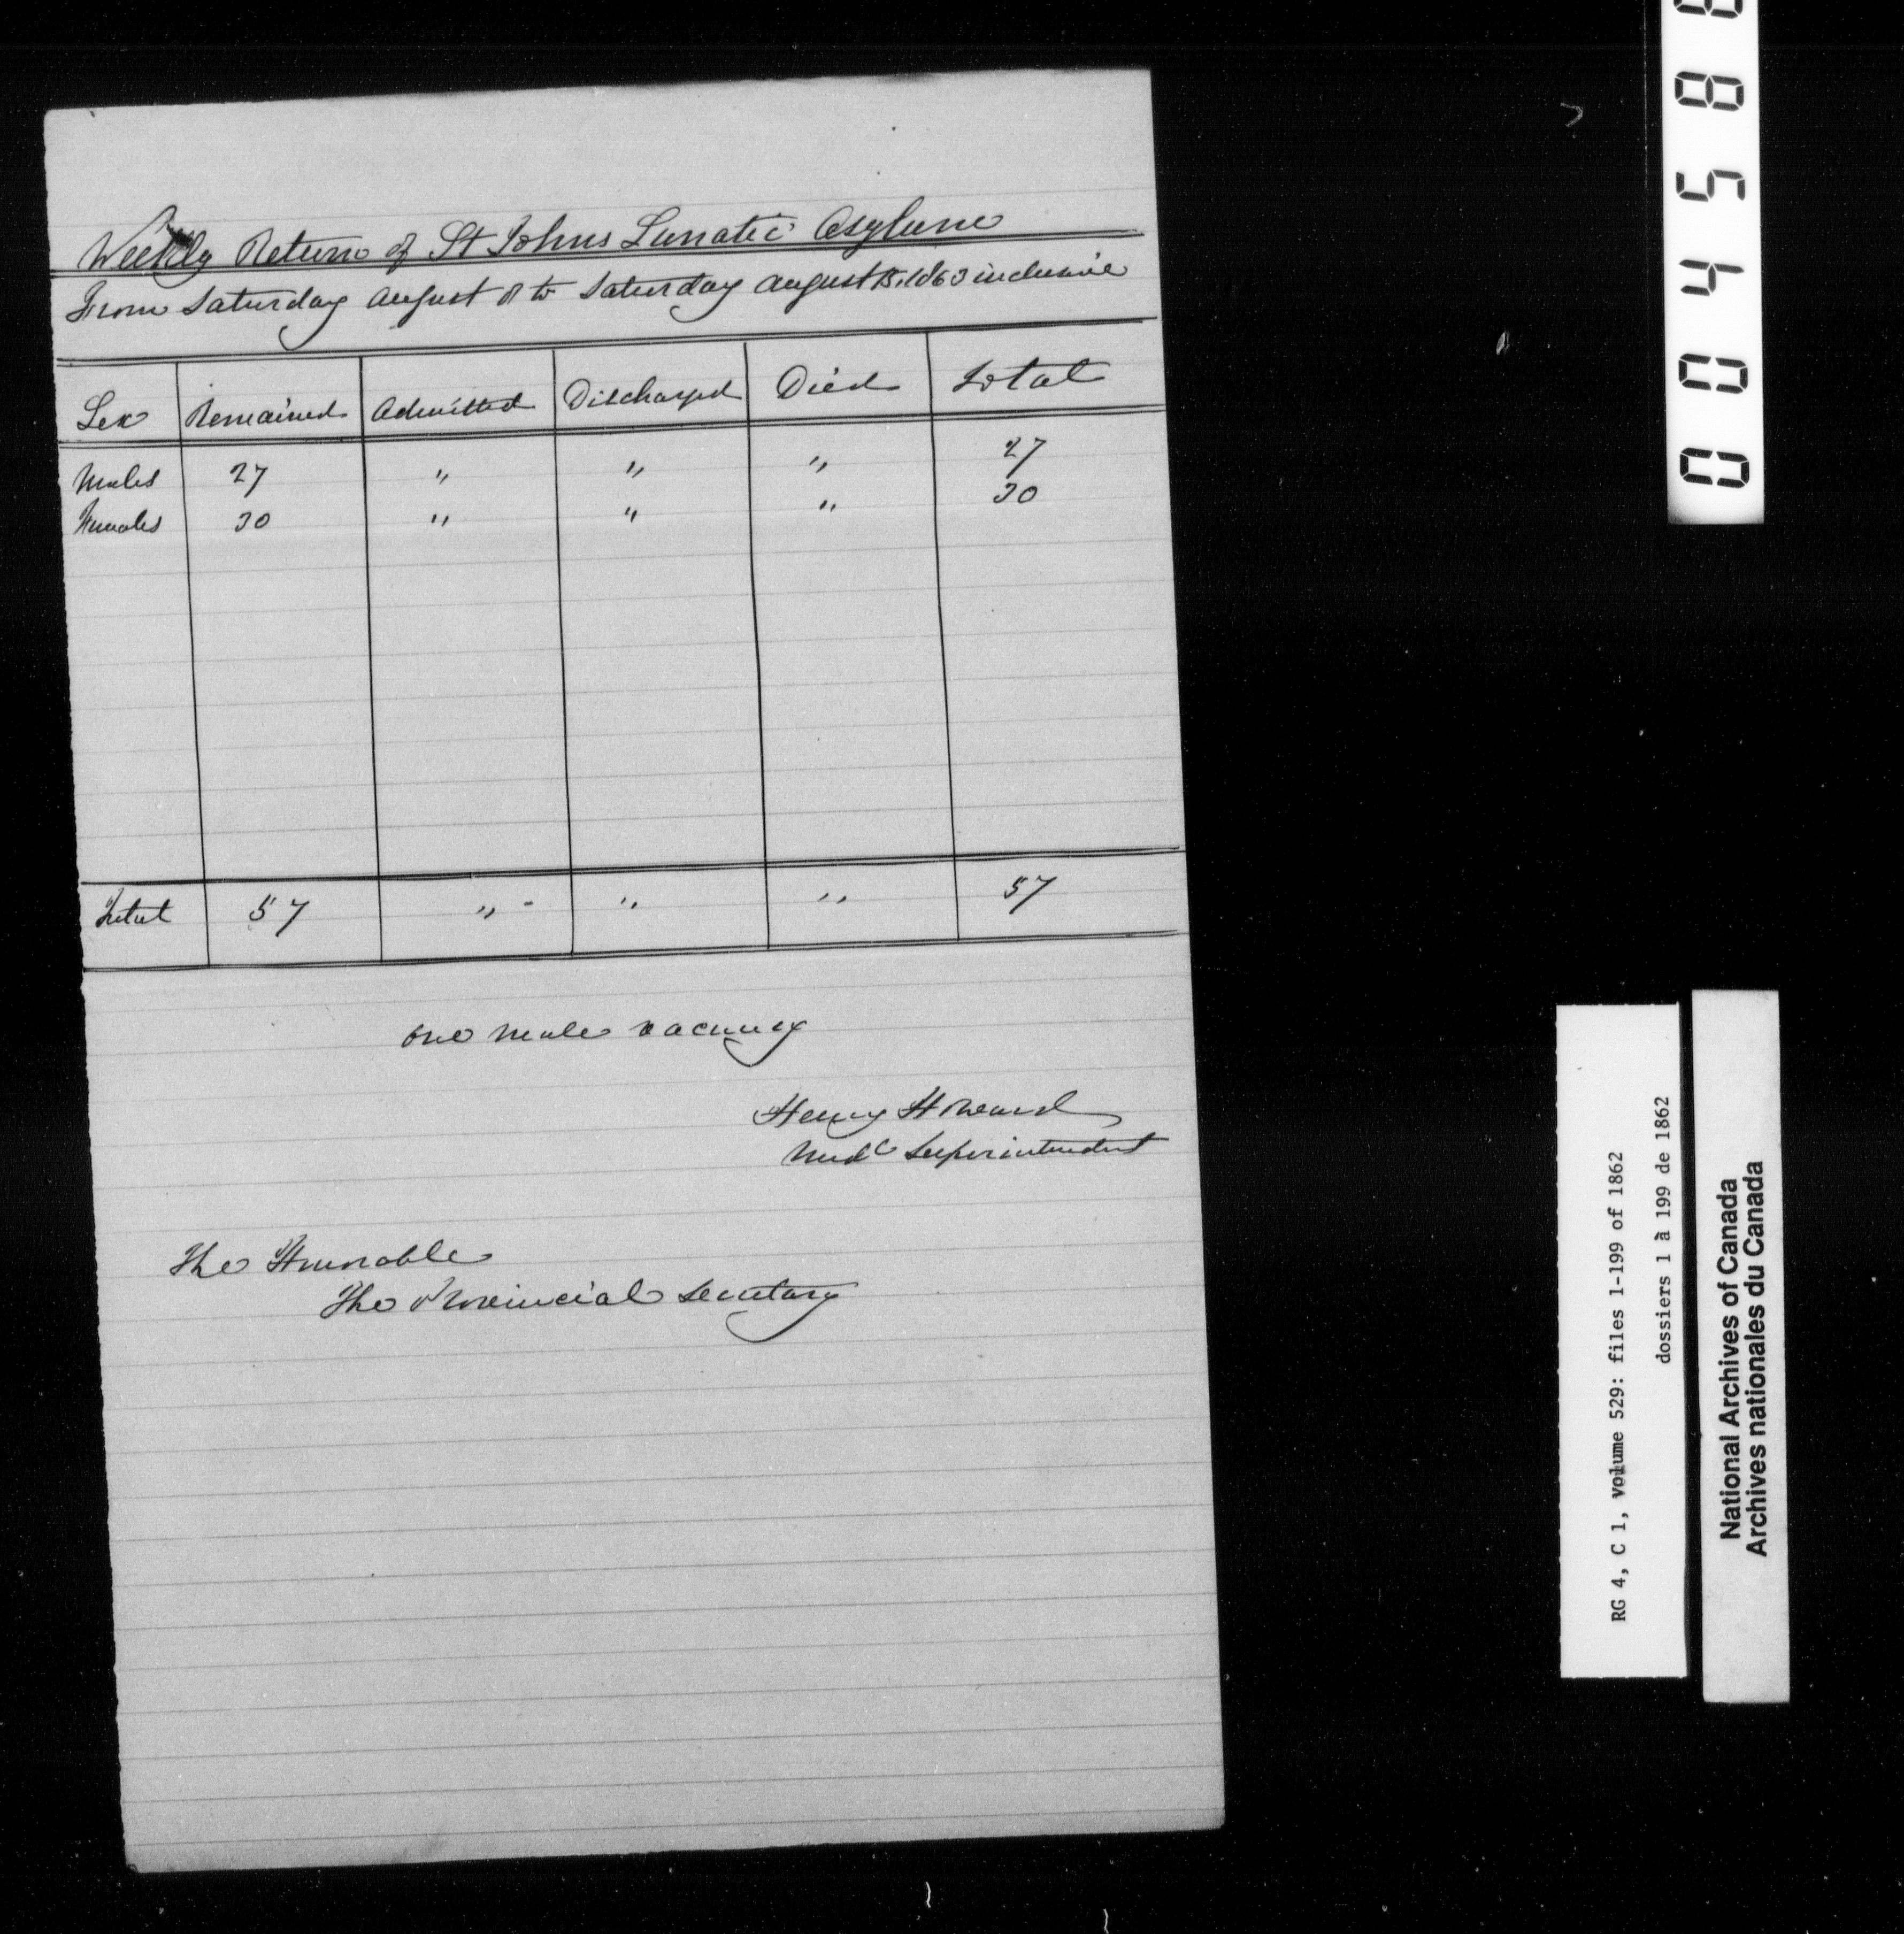 Weekly Return of St Johns Lunatic Asylum
From Saturday August 8 to Saturday August 15, 1863 inclusive
Sex Remained Admitted Discharged Died Total
Males 27 " " " 27
Females 30 " " " 30
Total 57 " - " " 57
one male vacancy
Henry Howard
Medl Superintendent
The Honorable
The Provincial Secretary
0 0 4 5 8
RG 4, C 1, volume 529: files 1-199 of 1862
dossiers 1 à 199 de 1862
National Archives of Canada
Archives nationales du Canada